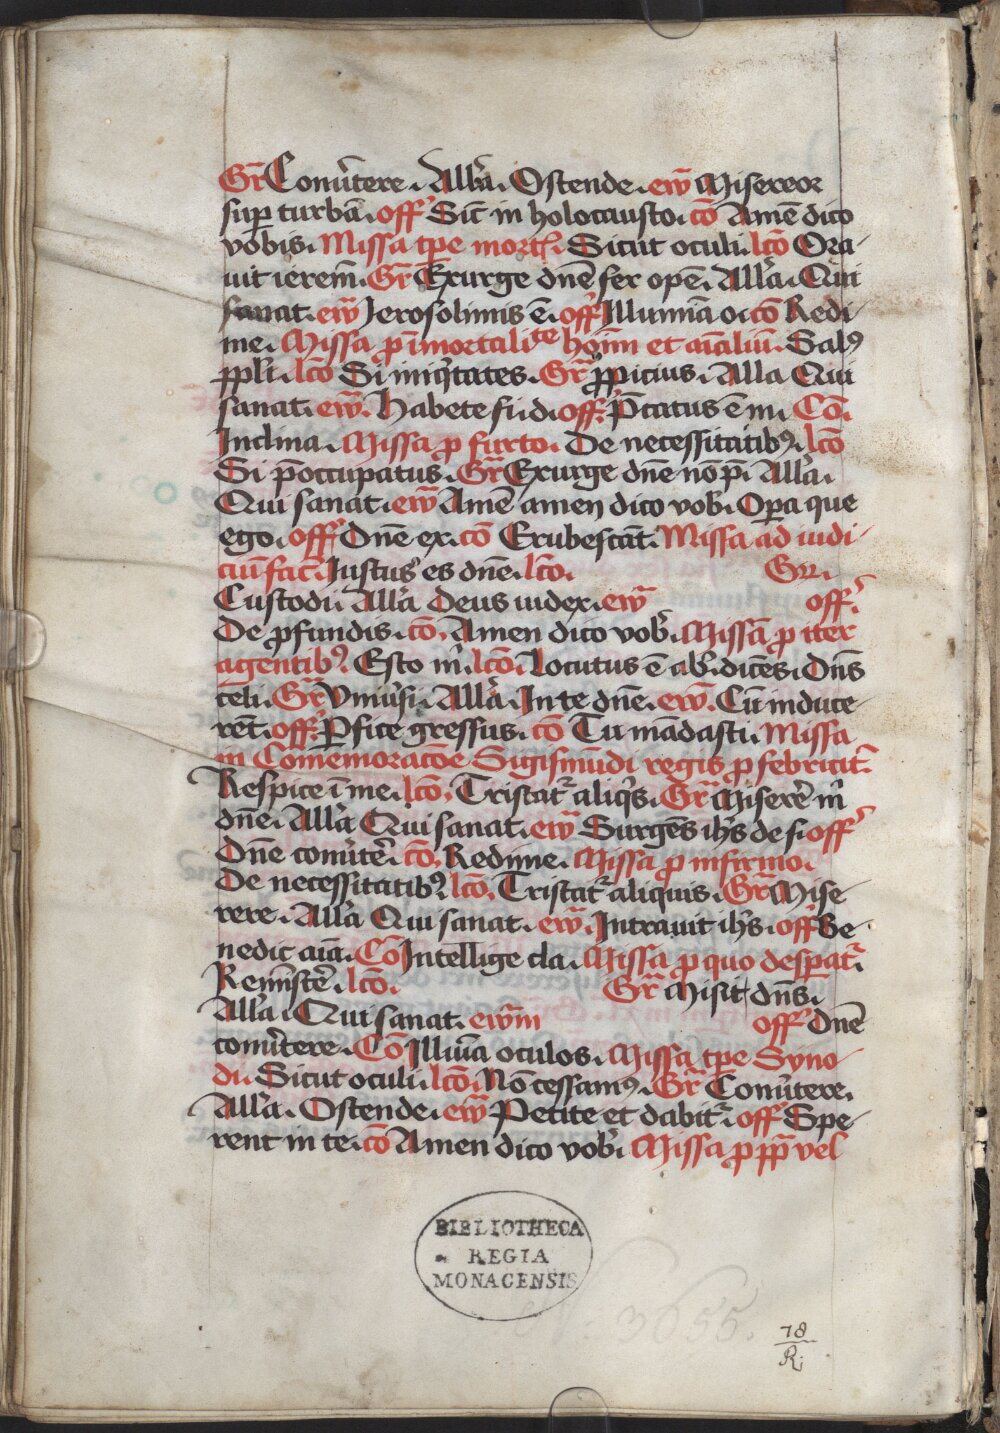 Gr̄ Conv̄tere. All'a. Ostende. ew̄ Misereor
sup̱ turbā. off' Sic̄ in holocausto. cō Amē dico
vobis. Missa tp̱e mortꝭ. Sicut oculi. lcō Ora-
uit ierem̄. Gr̄ Exurge dn̄e fer opē. All'a. Qui
sanat. ew̄ Jerosolimis ē. off' Illumīa o. cō Redi-
me. Missa ꝓ īmortalitᵗᵉ hoīm et aīaliū. Salꝰ
pp̱li. lcō Si iniq̇tates. Gr̄ ꝓpicius. Alla Qui
sanat. ew̄. Habete fid. off. P̄catus ē m. Cō.
Inclina. Missa ꝓ furto. De necessitatibꝰ. lcō
Si p̄occupatus. Gr̄ Exurge dn̄e nō p̱. All'a.
Qui sanat. ew̄ Amē amen dico vob'. Op̱a que
ego. off' Dn̄e ex. cō Erubescāt. Missa ad iudi-
ciū fac̄. Justus es dn̄e. lcō. Gr̄.
Custodi. All'a Deus iudex. ew̄ off'.
De ꝓfundis. cō. Amen dico vob'. Missa ꝓ iter
agentibꝰ. Esto m'. lcō. Locutus ē ab'. dicēs. Dn̄s
celi. Gr̄ Vniu'si. All'a. In te dn̄e. ew̄. Cū induce-
rēt. off'. P̱fice gressus. cō Tu mādasti. Missa
in Comemoracōe Sigismūdi regis ꝓ febricit'.
Respice ī me. lcō. Tristat' aliq̇s. Gr̄ Miserē m'
dn̄e. All'a Qui sanat. ew̄ Surgēs ih's de s. off'
Dn̄e conv̄tē. cō. Redime. Missa ꝓ infirmo.
De necessitatibꝰ. lcō. Tristat' aliquis. Gr̄ Mise-
rere. All'a Qui sanat. ew̄. Intrauit ih's. off' Be-
nedic aīa. Cō Intellige cla. Missa ꝓ quo desp̱at'.
Reminīscē. lcō. Gr̄ Misit dn̄s.
All'a. Qui sanat. ew̄m off' Dn̄e
conv̄tere. Cō Illuīa oculos. Missa tp̱e Syno-
di. Sicut oculi. lcō. Nō cessamꝰ. Gr̄ Conv̄tere.
All'a. Ostende. ew̄ Petite et dabit'. off' Spe-
rent in te. cō Amen dico vob'. Missa ꝓ pp̄ vel
BIBLIOTHECA
REGIA
MONACENSIS
3655.
78
R.